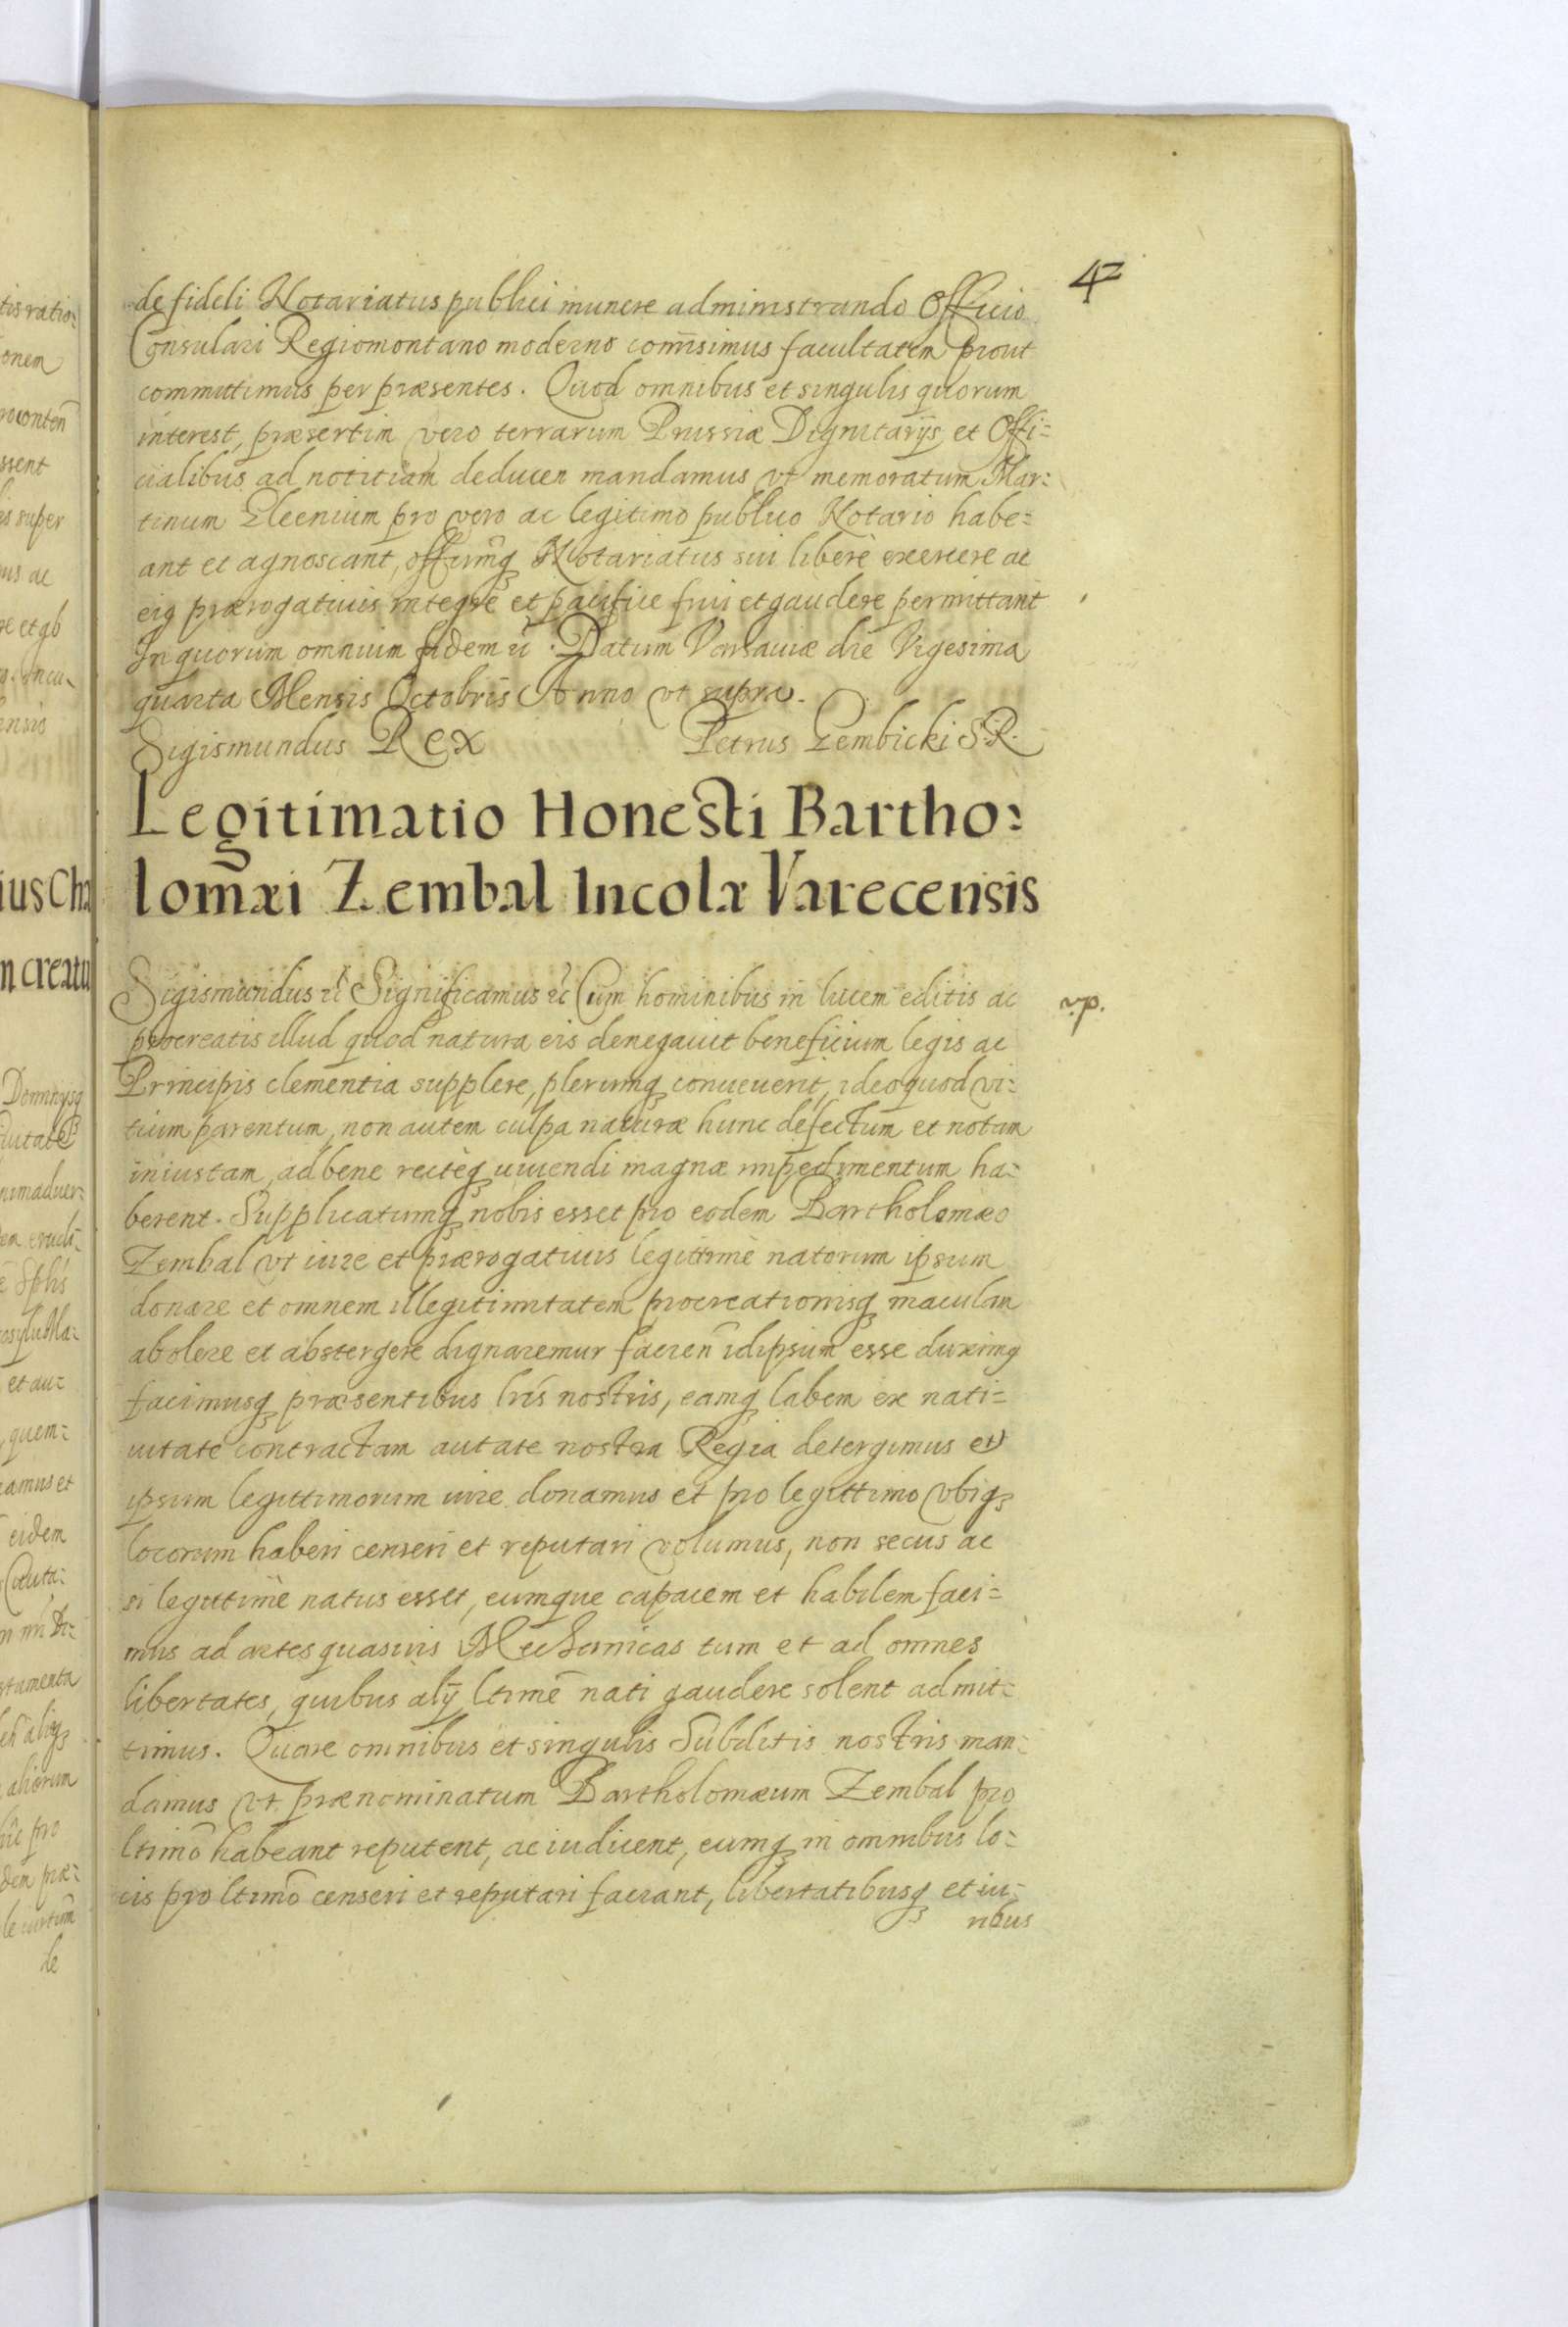 42
de fideli Notariatus publici munere administrando Officio
Consulari Regiomontano moderno com̄isimus facultatem prout
committimus per præsentes. Quod omnibus et singulis quorum
interest, præsertim vero terrarum Prussiæ Dignitarijs et Offi=
cialibus ad notitiam deducen mandamus vt memoratum Mar=
tinum pro vero ac legitimo publico Notario habe=
ant et agnoscant, offūmq Notariatus sui liberè exercere ac
eiq prærogatiuis integrè et pacifice frui et gaudere permittant
In quorum omnium fidem ꝛc̃. Datum Varsauiæ die Vigesima
quarta Mensis Octobris Anno vt supra.
Sigismundus Rex Petrus Zembicki S.R.
Legitimatio Honesti Bartho=
lomæi Zembal Incolæ Varecensis
Sigismundus ꝛc̃ Significamus ꝛc̃ Cum hominibus in lucem editis ac
procreatis illud quod natura eis denegauit beneficium legis ac
Principis clementia supplere, plerumq conueuerit, ideo quod vi=
tium parentum, non autem culpa naturæ hunc defectum et notam
iniustam, ad bene rectèq viuendi magnæ impedimentum ha=
berent. Supplicatumq nobis esset pro eodem Bartholomæo
Zembal vt iure et prærogatiuis legittimè natorum ipsum
donare et omnem illegitimitatem procreationisq maculam
abolere et abstergere dignaremur facien̄ idipsum esse duximq
facimusq præsentibus lr̄is nostris, eamq labem ex nati=
uitate contractam autate nostra Regia detergimus et
ipsum legittimorum iure donamus et pro legittimo vbiq
locorum haberi censeri et reputari volumus, non secus ac
si legittimè natus esset, eumque capacem et habilem faci=
mus ad artes quasuis Mechanicas tum et ad omnes
libertates, quibus alij ltimē nati gaudere solent admit=
timus. Quare omnibus et singulis Subditis nostris man=
damus vt prænominatum Bartholomæum Zembal pro
ltimō habeant reputent, ac iudicent, eumq in omnibus lo=
cis pro ltimō censeri et reputari faciant, libertatibusq et iu=
ribus
v.p.
tis ratio=
onem
ssent
is super
eidem
aliorum
de